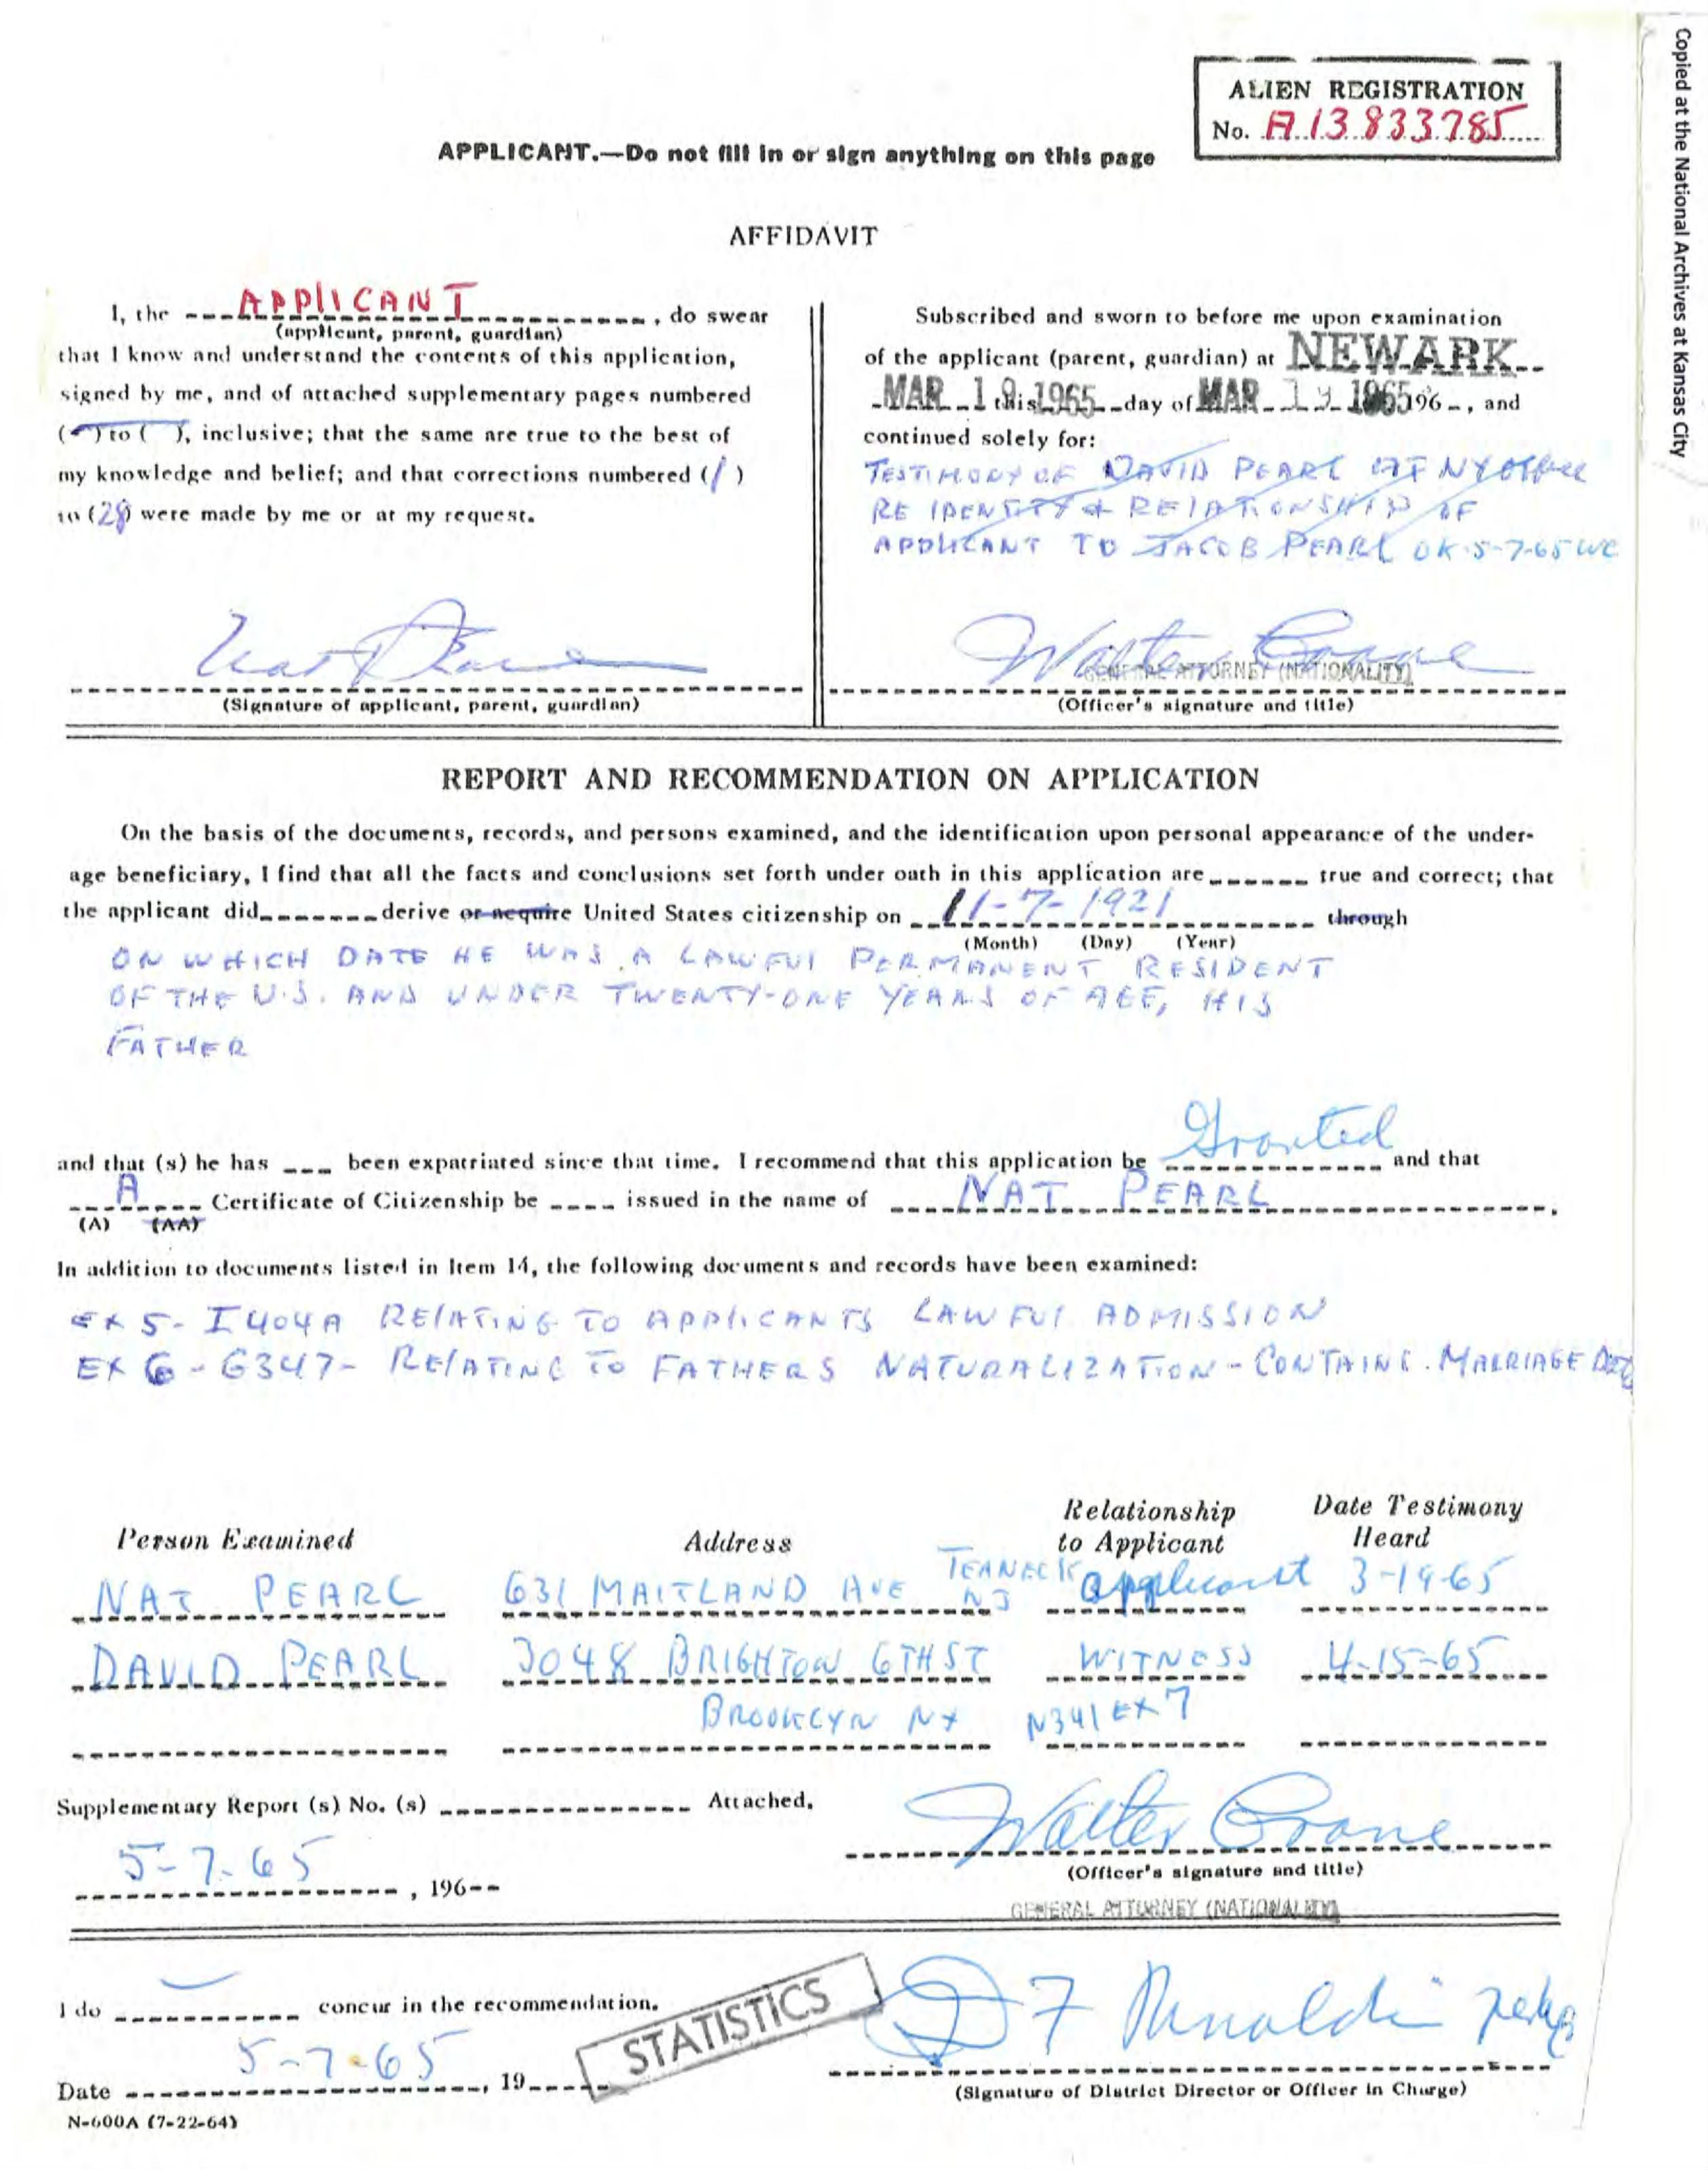 Copied at the National Archives at Kansas City
ALIEN REGISTRATION
No. A13 833 785
APPLICANT.—Do not fill in or sign anything on this page
AFFIDAVIT
I, the APPLICANT, do swear
(applicant, parent, guardian)
that I know and understand the contents of this application,
signed by me, and of attached supplementary pages numbered
( - ) to ( ), inclusive; that the same are true to the best of
my knowledge and belief; and that corrections numbered (1)
to (28) were made by me or at my request.
(Signature of applicant, parent, guardian)
Subscribed and sworn to before me upon examination
of the applicant (parent, guardian) at NEWARK
MAR 19 1965 this day of MAR 19 1965 196 , and
continued solely for:
TESTIMONY OF DAVID PEARL AT NY OFFICE
RE IDENTITY & RELATIONSHIP OF
APPLICANT TO JACOB PEARL OK 5-7-65 WC
Walter Crane
GENERAL ATTORNEY (NATIONALITY)
(Officer's signature and title)
REPORT AND RECOMMENDATION ON APPLICATION
On the basis of the documents, records, and persons examined, and the identification upon personal appearance of the under-
age beneficiary, I find that all the facts and conclusions set forth under oath in this application are true and correct; that
the applicant did derive or acquire United States citizenship on 11-7-1921 through
(Month) (Day) (Year)
ON WHICH DATE HE WAS A LAWFUL PERMANENT RESIDENT
OF THE U.S. AND UNDER TWENTY-ONE YEARS OF AGE, HIS
FATHER
and that (s) he has been expatriated since that time. I recommend that this application be Granted and that
A Certificate of Citizenship be issued in the name of NAT PEARL.
(A) (AA)
In addition to documents listed in Item 14, the following documents and records have been examined:
EX 5- I404A RELATING TO APPLICANTS LAWFUL ADMISSION
EX 6 - G347- RELATING TO FATHERS NATURALIZATION - CONTAINS MARRIAGE
Person Examined Address Relationship to Applicant Date Testimony Heard
NAT PEARL 631 MAITLAND AVE TEANECK NJ applicant 3-19-65
DAVID PEARL 3048 BRIGHTON 6TH ST WITNESS 4-15-65
BROOKLYN NY N341 EX 7
Supplementary Report (s) No. (s) Attached.
5-7-65, 196
Walter Crane
(Officer's signature and title)
GENERAL ATTORNEY (NATIONALITY)
I do concur in the recommendation.
STATISTICS
Date 5-7-65, 19
(Signature of District Director or Officer in Charge)
N-600A (7-22-64)